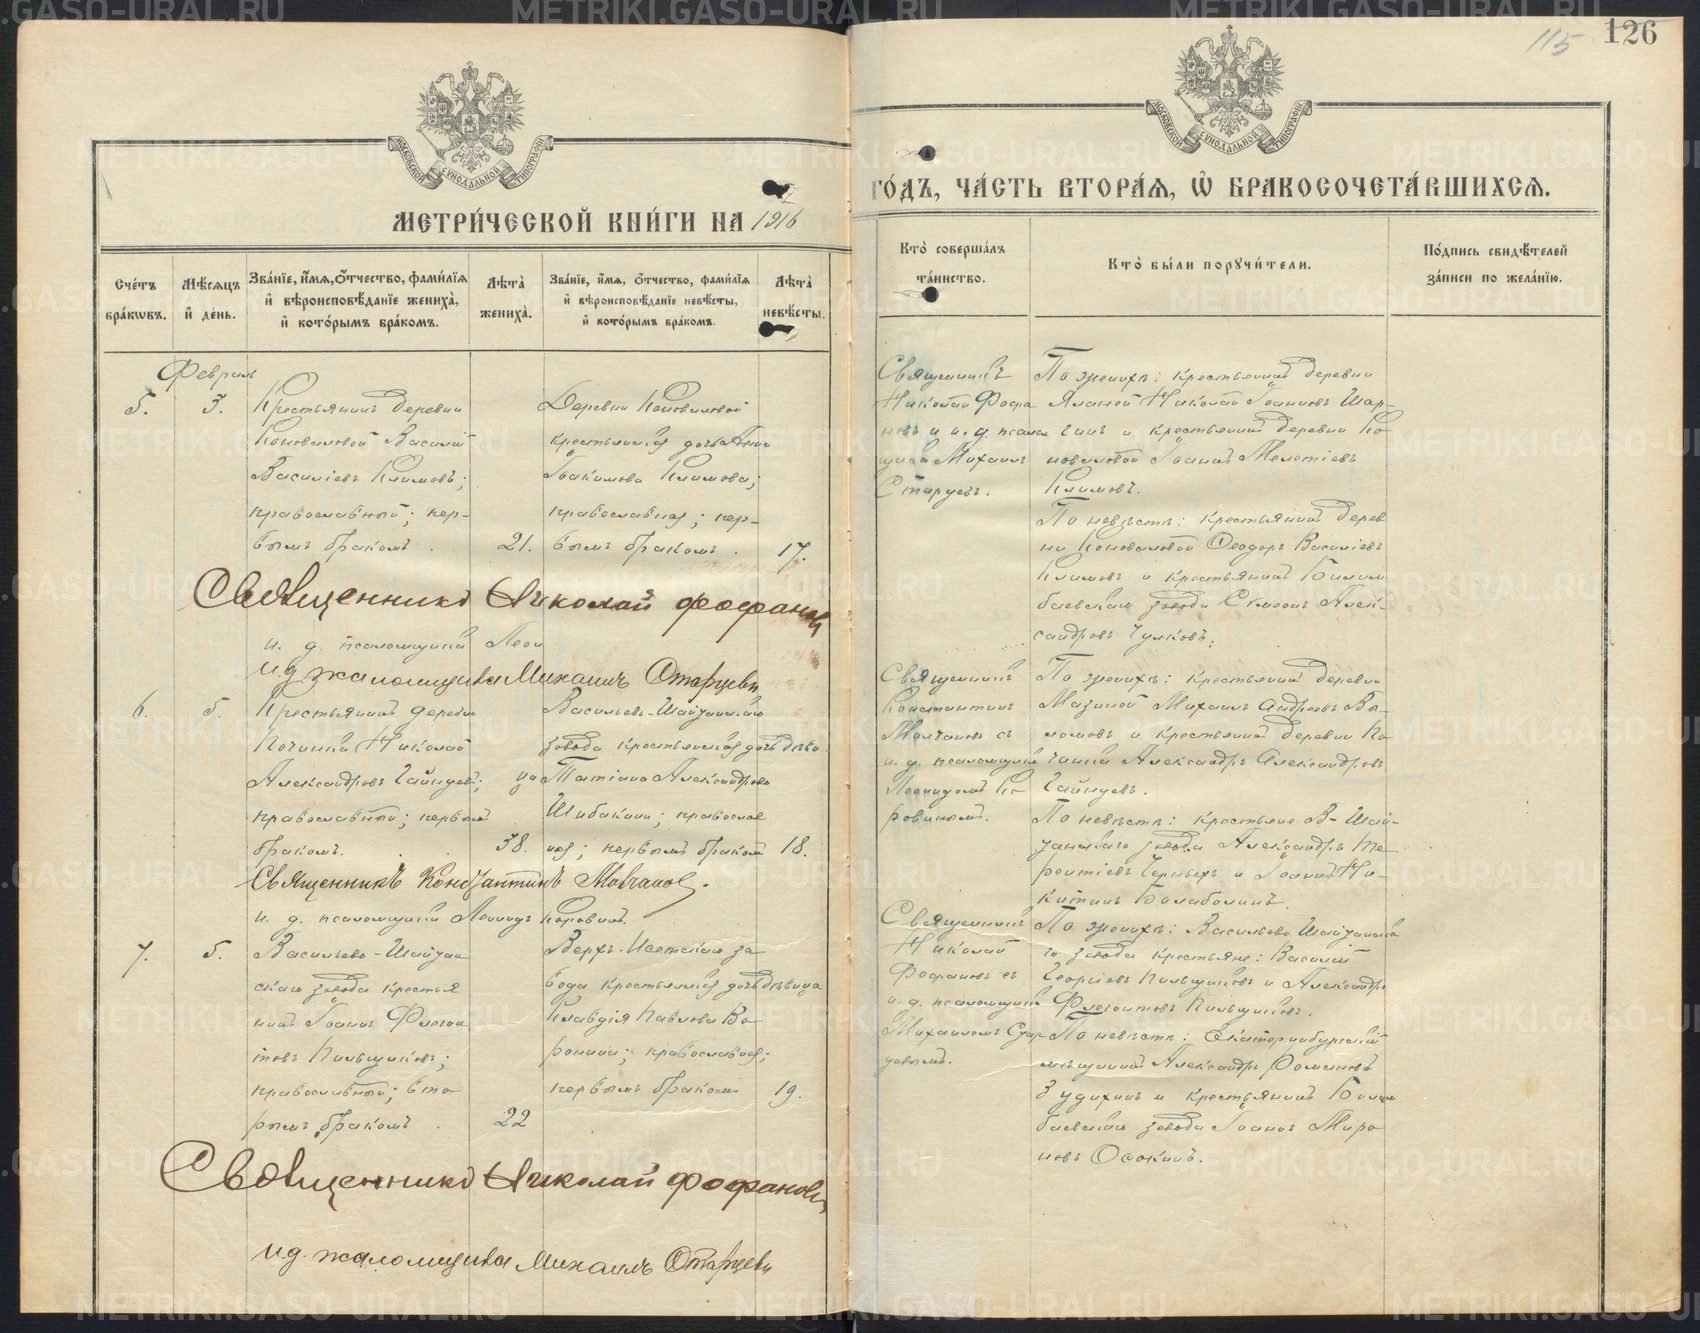 115 126
МОСКОВСКОЙ СѴНОДАЛЬНОЙ ТИПОГРАФІИ
МОСКОВСКОЙ СѴНОДАЛЬНОЙ ТИПОГРАФІИ
МЕТРИ́ЧЕСКОЙ КНИ́ГИ НА 1916
ГО́ДЪ, ЧА́СТЬ ВТОРА́Я, Ѡ БРАКОСОЧЕТА́ВШИХСЯ.
Сче́тъ бра́кѡвъ.
Мѣ́сяцъ и де́нь.
Зва́нїе, и́мя, ѻ҆́тчество, фами́лїя и҆ вѣроисповѣ́данїе жениха̀, и҆ кото́рымъ бра́комъ.
Лѣта̀ жениха̀.
Зва́нїе, и́мя, ѻ҆́тчество, фами́лїя и҆ вѣроисповѣ́данїе невѣ́сты, и҆ кото́рымъ бра́комъ.
Лѣта̀ невѣ́сты.
Кто̀ соверша́лъ та́инство.
Кто̀ бы́ли порꙋчи́тели.
По́дпись свидѣ́телей за́писи по жела́нїю.
Февраль
5.
3.
Крестьянинъ деревни
Коноваловой Василій
Василіевъ Климовъ;
православный; пер-
вымъ бракомъ.
21.
Деревни Коноваловой
крестьянская дочь Анна
Іоакимова Климова;
православная; пер-
вымъ бракомъ.
17.
Священникъ
Николай Фофа
новъ и и. д. псалом
щика Михаилъ
Старцевъ.
По женихѣ: крестьянинъ деревни
Николай Іоанновъ Шар-
гинъ и крестьянинъ деревни Ко-
новаловой Іоаннъ Мелетіевъ
Климовъ.
По невѣстѣ: крестьянинъ дерев
ни Коноваловой Ѳеодоръ Василіевъ
Климовъ и крестьянинъ Билим
баевскаго завода Симеонъ Алек-
сандровъ Чулковъ.
Священникъ Николай Фофановъ
и. д. псаломщика Леон
и. д. псаломщика Михаилъ Старцевъ
6.
5.
Крестьянинъ деревни
Починка Николай
Александровъ Гайнцевъ;
православный; первымъ
бракомъ.
38.
Васильево-Шайтанскаго
завода крестьянская дочь дѣви-
ца Татіана Александрова
Шибакина; православ
ная; первымъ бракомъ
18.
Священникъ
Константинъ
Молчановъ съ
и. д. псаломщика
Леонидомъ Ко
ровинымъ.
По женихѣ: крестьянинъ деревни
Мазиной Михаилъ Андреевъ Вы-
ломовъ и крестьянинъ деревни По
чинка Александръ Александровъ
Гайнцевъ.
По невѣстѣ: крестьяне В-Шай-
танскаго завода Александръ Те
рентіевъ Черныхъ и Іоаннъ Ни-
китинъ Балабанинъ.
Священникъ Константинъ Молчановъ.
и. д. псаломщика Леонидъ Коровинъ.
7.
5.
Васильево-Шайтан
скаго завода крестья
нинъ Іоаннъ Флегон
товъ Пильщиковъ;
православный; вто
рымъ бракомъ.
22
Верхъ-Исетскаго за
вода крестьянская дочь дѣвица
Клавдія Павлова Во
ронина; православная;
первымъ бракомъ
19.
Священникъ
Николай
Фофановъ съ
и. д. псаломщика
Михаиломъ Стар
цевымъ.
По женихѣ: Васильево Шайтанска
го завода крестьяне: Василій
Георгіевъ Пильщиковъ и Александръ
Флегонтовъ Пильщиковъ.
По невѣстѣ: Екатеринбургскій
мѣщанинъ Александръ Романовъ
Зудихинъ и крестьянинъ Билим
баевскаго завода Іоаннъ Миро
новъ Осокинъ.
Священникъ Николай Фофановъ
и. д. псаломщика Михаилъ Старцевъ
METRIKI.GASO-URAL.RU